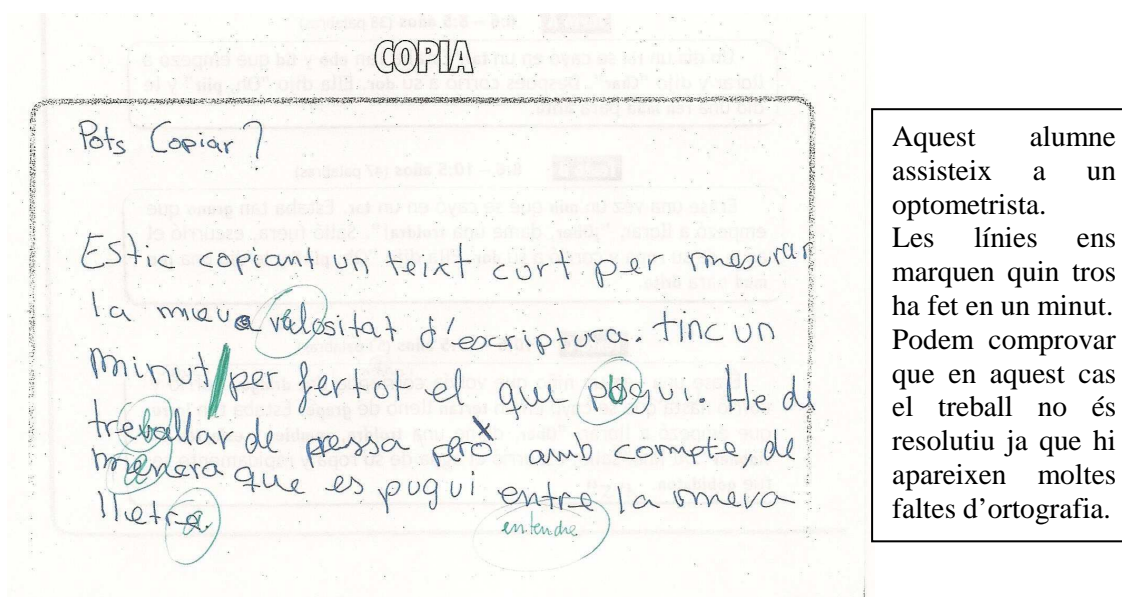 COPIA
Pots Copiar ?
Estic copiant un teixt curt per mesurar
la mieva velositat d'escriptura. tinc un
minut/per fertot el que pugui. He de
treballar de pressa però amb compte de
manera que es pugui entre la meva
lletra
entendre
Aquest alumne
assisteix a un
optometrista.
Les línies ens
marquen quin tros
ha fet en un minut.
Podem comprovar
que en aquest cas
el treball no és
resolutiu ja que hi
apareixen moltes
faltes d'ortografia.